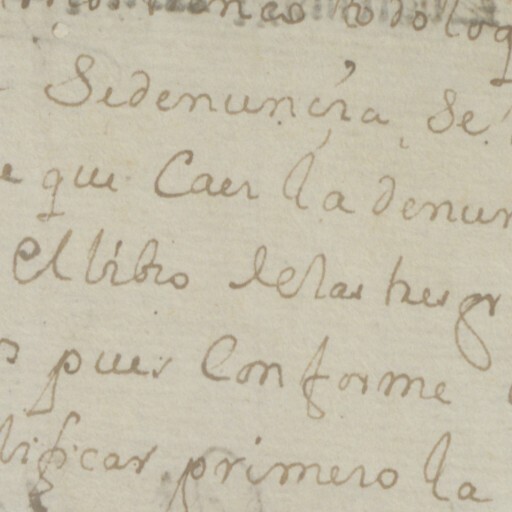 todo loq
Sedenuncira Se
qui Caer la denun
El libro delas tres gr
pues Conforme
lificar primero la